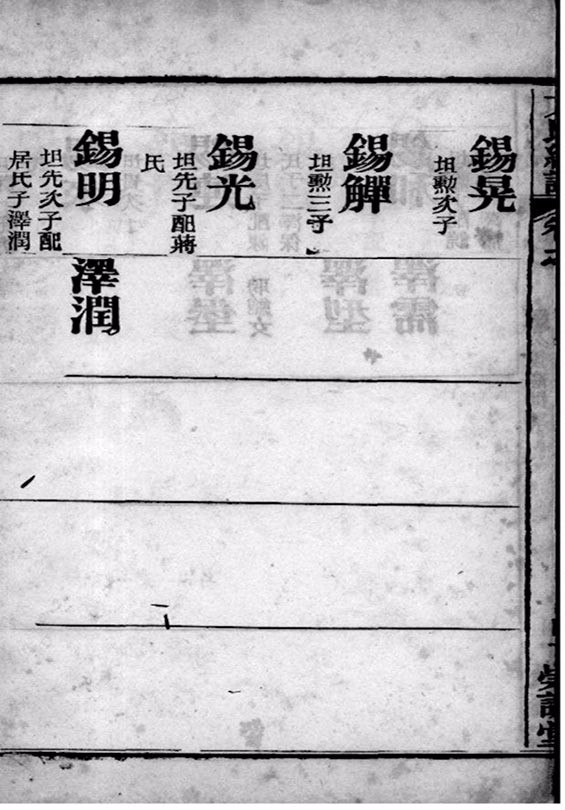 錫晃
坦勲次子
錫觶
坦勲三子
錫光
坦先子配蔣
氏
錫明
坦先次子配
居氏子澤潤
澤潤